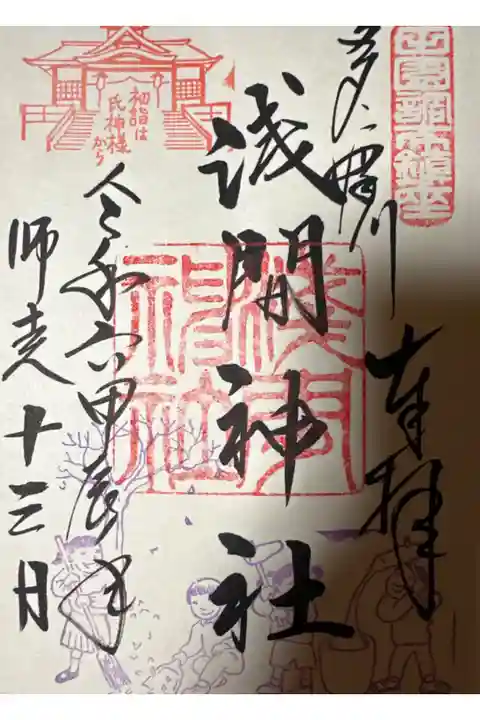 田園調布鎮座
奉拝
多摩川
浅間神社
淺間
神社
初詣は
氏神様
から
令和六甲辰年
師走十三日